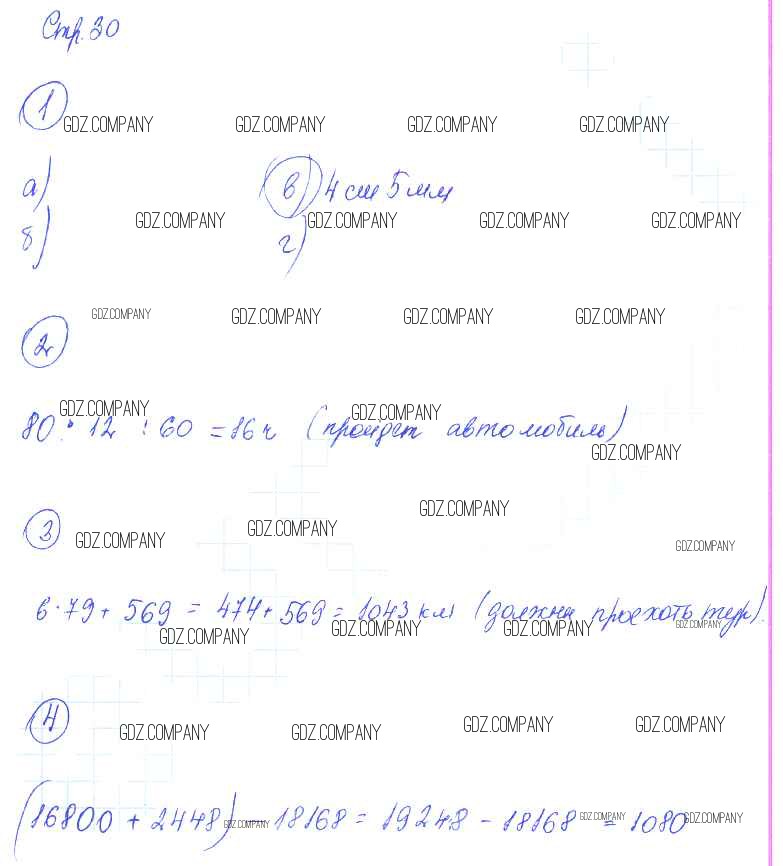 Стр. 30
1
GDZ.COMPANY GDZ.COMPANY GDZ.COMPANY GDZ.COMPANY
а) в) 4 см 5 мм
GDZ.COMPANY GDZ.COMPANY GDZ.COMPANY GDZ.COMPANY
б) г)
GDZ.COMPANY GDZ.COMPANY GDZ.COMPANY GDZ.COMPANY
2
GDZ.COMPANY GDZ.COMPANY
80 · 12 : 60 = 16 ч (пройдет автомобиль)
GDZ.COMPANY
GDZ.COMPANY
3
GDZ.COMPANY GDZ.COMPANY GDZ.COMPANY
6 · 79 + 569 = 474 + 569 = 1043 км (должны проехать тур)
GDZ.COMPANY GDZ.COMPANY GDZ.COMPANY GDZ.COMPANY
4
GDZ.COMPANY GDZ.COMPANY GDZ.COMPANY GDZ.COMPANY
(16800 + 2448) - 18168 = 19248 - 18168 = 1080
GDZ.COMPANY GDZ.COMPANY GDZ.COMPANY